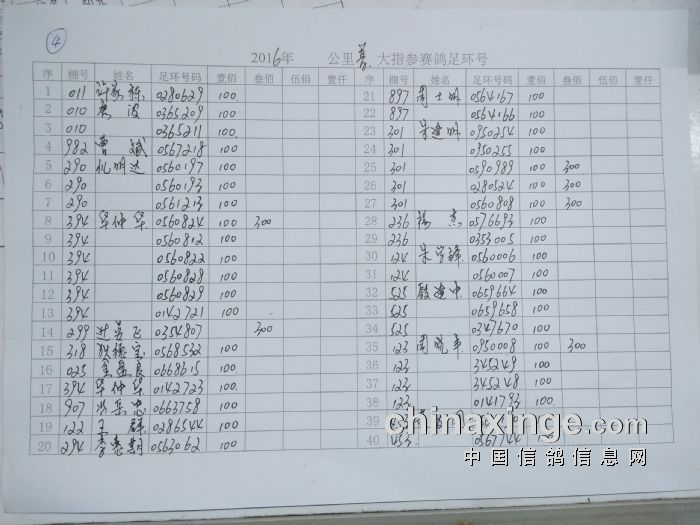 ④
2016年 公里 大指参赛鸽足环号
序 棚号 姓名 足环号码 壹佰 叁佰 伍佰 壹仟 序 棚号 姓名 足环号码 壹佰 叁佰 伍佰 壹仟
1 011 0280629 100 21 897 周士明 0564167 100
2 010 0365209 100 22 897 0564166 100
3 010 0365211 100 23 301 朱建明 0950254 100
4 982 曹斌 0567218 100 24 301 0950255 100
5 290 机明达 0560197 100 25 301 0590989 100 300
6 290 0560193 100 26 301 0280524 100 300
7 290 0561213 100 27 301 0560808 100 300
8 394 华仲华 0560824 100 300 28 236 杨杰 0576693 100
9 394 0560812 100 29 236 0353005 100
10 394 0560822 100 30 124 0560006 100
11 394 0560828 100 31 124 0560007 100
12 394 0560829 100 32 525 殷建中 0659664 100
13 394 0142721 100 33 525 0659658 100
14 299 0354807 300 34 525 0347670 100
15 318 狄德宝 0568532 100 35 123 周晓平 0950008 100 300
16 025 金盈良 0668615 100 36 123 345249 100
17 394 华仲华 0142723 100 37 123 345248 100
18 907 0663758 100 38 123 0141793 100
19 122 王群 0286544 100 39
20 294 李泰期 0563062 100 40 453 0267744 100
chinaxinge.com
中国信鸽信息网